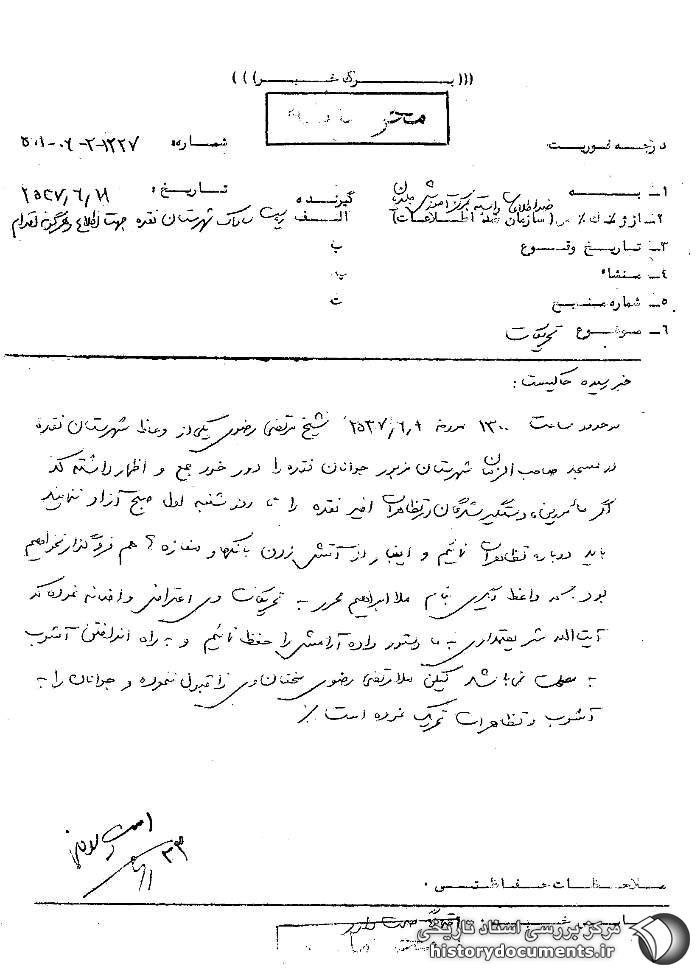 ((( بـــرگ خـــبـــر )))
محرمانه
درجـه فـوریـت
شـمـاره: ۱۳۲۷-۲-۰۶-۵۰۱
۱- بـــه
تـاریـخ: ۲۵۳۷/۶/۱۱
گیرنده
۲- از (سازمان ضد اطلاعات)
الـف ساواک شهرستان نقده جهت اطلاع و هرگونه اقدام
۳- تـاریـخ وقـوع
ب
۴- منشاء
پ
۵- شماره مـنـبـع
ت
۶- مـوضـوع تحریکات
خبر رسیده حاکیست:
در حدود ساعت ۱۳۰۰ مورخه ۲۵۳۷/۶/۹ شیخ مرتضی رضوی یکی از وعاظ شهرستان نقده
در مسجد صاحب الزمان شهرستان مزبور جوانان نقده را دور خود جمع و اظهار داشته که
اگر مأمورین دستگیر شدگان در تظاهرات اخیر نقده را تا روز شنبه اول صبح آزاد ننمایند
باید دوباره تظاهرات نمائیم و اینبار از آتش زدن بانکها و مغازه ها هم فروگذار نخواهیم
بود واعظ دیگری بنام ملا ابراهیم محرر به تحریکات وی اعتراض و اضافه نموده که
آیت الله شریعتمداری به ما دستور داده آرامش را حفظ نمائیم و به راه انداختن آشوب
به صلاح نمی باشد لیکن ملا مرتضی رضوی سخنان وی را قبول ننموده و جوانان را به
آشوب و تظاهرات تحریک نموده است.
مـلاحـظـات حـفـاظـتـی.
مرکز بررسی اسناد تاریخی
historydocuments.ir